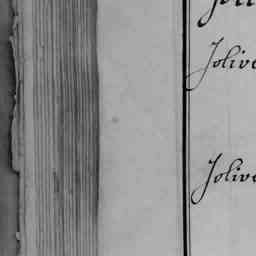 Jolive
Jolive